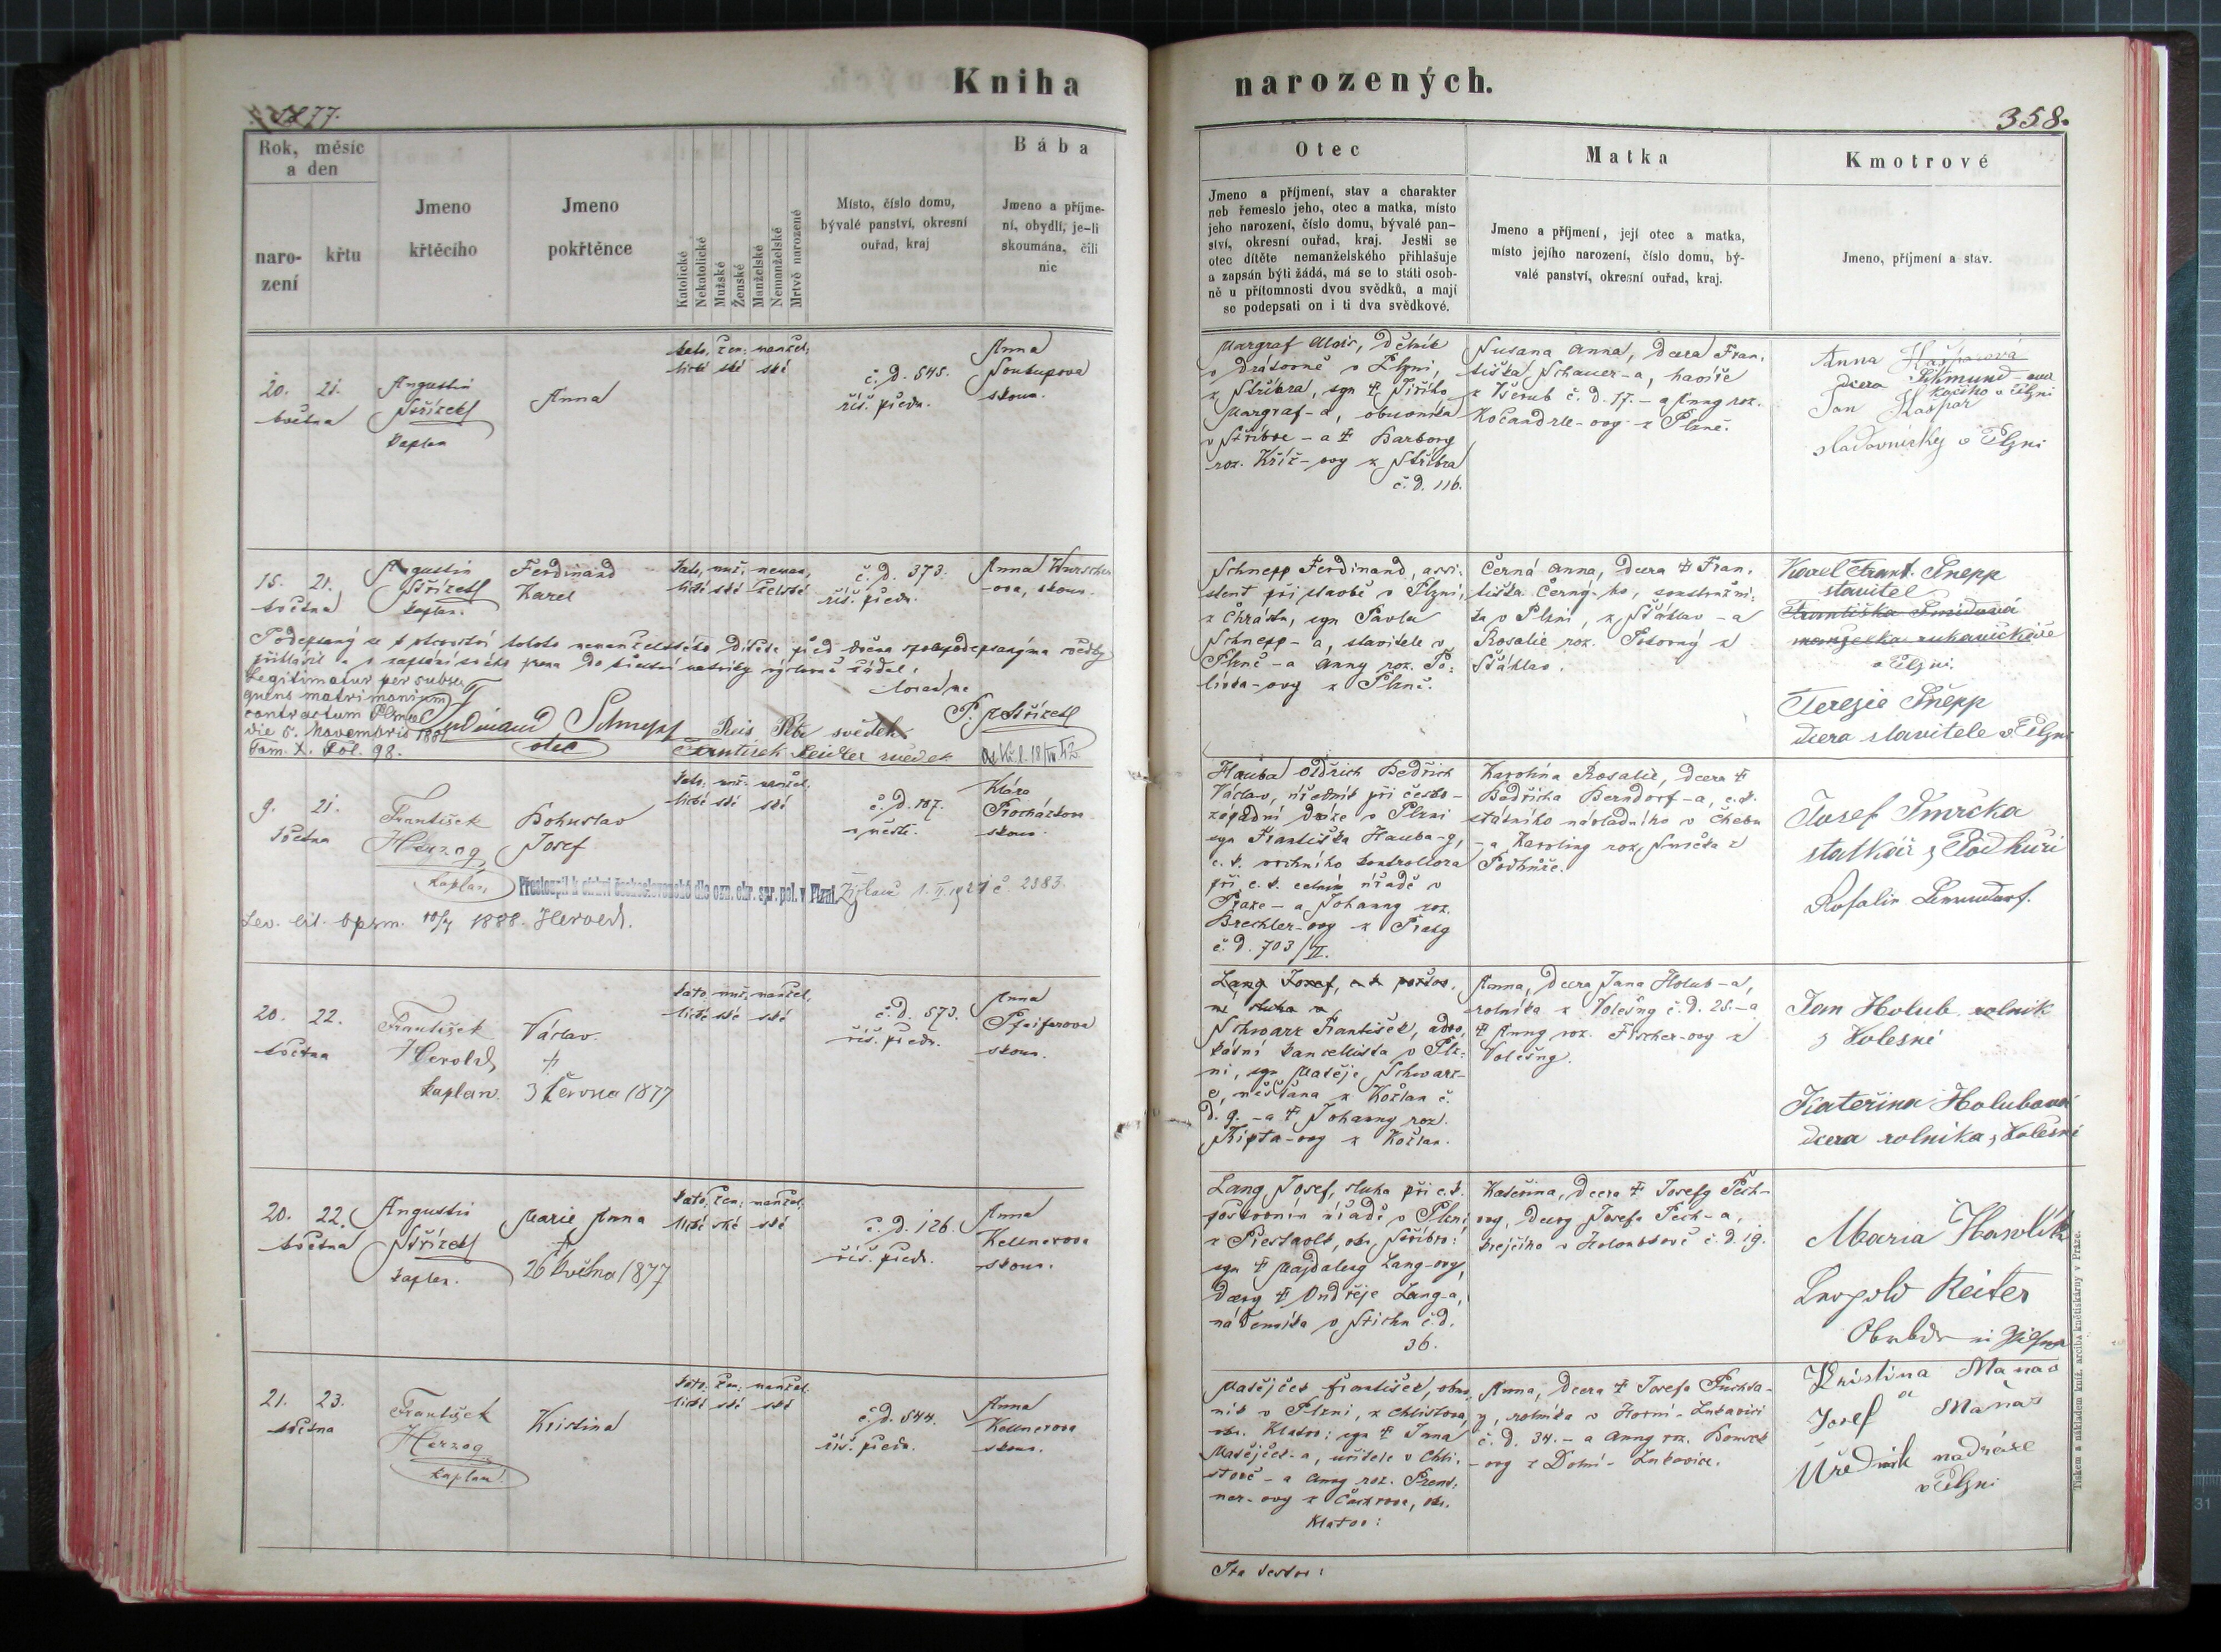 Kniha
1877.
Rok, měsíc
a den
naro-
zení
křtu
Jmeno
křtěcího
Jmeno
pokřtěnce
Katolické
Nekatolické
Mužské
Ženské
Manželské
Nemanželské
Mrtvě narozené
Místo, číslo domu,
bývalé panství, okresní
ouřad, kraj
Bába
Jmeno a příjme-
ní, obydlí, je-li
skoumána, čili
nic
20. 21.
května
Augustin
Střízek
kaplan
Anna
kato, žen: manžel:
lické ské ské
č. d. 545.
říš. předm.
Anna
Soukupova
skoum.
15. 21.
května
Augustin
Střízek
kaplan.
Ferdinand
Karel
kato, muž: neman,
lické ské želské
č. d. 373.
říš. předm.
Anna
ova, skoum.
Podepsaný se k otcovství tohoto nemanželského dítěte před dvěma spolupodepsanýma svědky
přihlásil a o zapsání svého jmena do křestní matriky výslovně žádal.
Legitimatur per subse
quens matrimonium
contractum
die 5. Novembris
Tom. X. Fol. 98.
Ferdinand Schnepp
otec
svědek
František svědek
P. A. Střízek
9. 21.
května
František
Herzog
kaplan
Bohuslav
Josef
kato, muž: manžel:
lické ské ské
č. d. 107.
město.
Klára
Procházkova
skoum.
Přestoupil k církvi československé dle ozn. okr. spr. pol. v Plzni. 1. II. 1921 č. 2383.
1888. Herold.
20. 22.
května
František
Herold
kaplan.
Václav
†
3 června 1877
kato, muž: manžel,
lické ské ské
č. d. 573.
říš. předm.
Anna
Pfeiferova
skoum.
20. 22.
května
Augustin
Střízek
kaplan.
Marie Anna
†
26 května 1877
kato, žen: manžel:
lické ské ské
č. d. 126.
říš. předm.
Anna
Kellnerova
skoum.
21. 23.
května
František
Herzog
kaplan.
Kristina
kato, žen: manžel.
lické ské ské
č. d. 544.
říš. předm.
Anna
Kellnerova
skoum.
narozených.
358.
Otec
Jmeno a příjmení, stav a charakter
neb řemeslo jeho, otec a matka, místo
jeho narození, číslo domu, bývalé pan-
ství, okresní ouřad, kraj. Jestli se
otec dítěte nemanželského přihlašuje
a zapsán býti žádá, má se to státi osob-
ně u přítomnosti dvou svědků, a mají
se podepsati on i ti dva svědkové.
Matka
Jmeno a příjmení, její otec a matka,
místo jejího narození, číslo domu, bý-
valé panství, okresní ouřad, kraj.
Kmotrové
Jmeno, příjmení a stav.
Margraf Alois, dělník
v drátovně v Plzni,
z Stříbra, syn † Jiřího
Margraf-a, obuvníka
v Stříbře - a † Barbory
roz. Kříž-ovy z Stříbra
č. d. 116.
Susana Anna, dcera Fran.
tiška Schauer-a, havíře
z Všerub č. d. 17. - a Anny roz.
Kočandrle-ovy z Plané.
Anna Kašparová
dcera
Jan Kašpar
sladovnický v Plzni
Schnepp Ferdinand, assi-
stent při stavbě v Plzni,
z Chrástu, syn Pavla
Schnepp-a, stavitele v
Plzně - a Anny roz. Po-
lívka-ovy z Plzně.
Černá Anna, dcera † Fran.
tiška Černý-ho,
v Plzni, z Šťáhlav - a
Rosalie roz. z
Šťáhlav.
Karel Frant. Šnepp
stavitel
Františka
manželka rukavičkáře
v Plzni.
Terezie Šnepp
dcera stavitele v Plzni
Hauba Oldřich Bedřich
Václav, úředník při česko-
západní dráze v Plzni
syn Františka Hauba-y,
c. k. vrchního kontrollora
při c. k. celním úřadě v
Praze - a Johanny roz.
Brechler-ovy z Prahy
č. d. 703/II.
Karolina Rosalie, dcera †
Bedřicha Berndorf-a, c. k.
státního návladního v Chebu
- a Karoliny roz. Smrčka z
Podhuře.
Josef Smrčka
statkář z Podhuří
Rosalie
Lang Josef, c. k. poštov.
ní sluha v
Schwarz František, advo,
kátní kancellista v Plz-
ni, syn Matěje Schwarz-
e, měšťana z Kožlan č.
d. 9. - a † Johanny roz.
Kipta-ovy z Kožlan.
Anna, dcera Jana Holub-a,
rolníka z Volešny č. d. 28. - a
† Anny roz. Fischer-ovy z
Volešny.
Jan Holub rolník
z Holešné
Kateřina Holubová
dcera rolníka z Holešné
Lang Josef, sluha při c. k.
poštovním úřadě v Plzni
z Prostiboř, okr. Stříbro:
syn † Majdaleny Lang-ovy,
dcery † Ondřeje Lang-a,
nádenníka v č. d.
36.
Kateřina, dcera † Josefy Pech-
ovy, dcery Josefa Pech-a,
krejčího v č. d. 19.
Maria Havlik
Leopold Reiter
Matějček František, obuv,
ník v Plzni, z Chlistova,
okr. Klatov: syn † Jana
Matějček-a, učitele v Chli-
stově - a Anny roz.
ner-ovy z Čachrova, okr.
Klatov:
Anna, dcera † Josefa
y, rolníka v Horní-Lukavici
č. d. 34. - a Anny roz.
-ovy z Dolní-Lukavice.
Kristina Maňas
a
Josef Maňas
Úředník na dráze
v Plzni
Ita testor:
Tiskem a nákladem kníž. arcib. knihtiskárny v Praze.